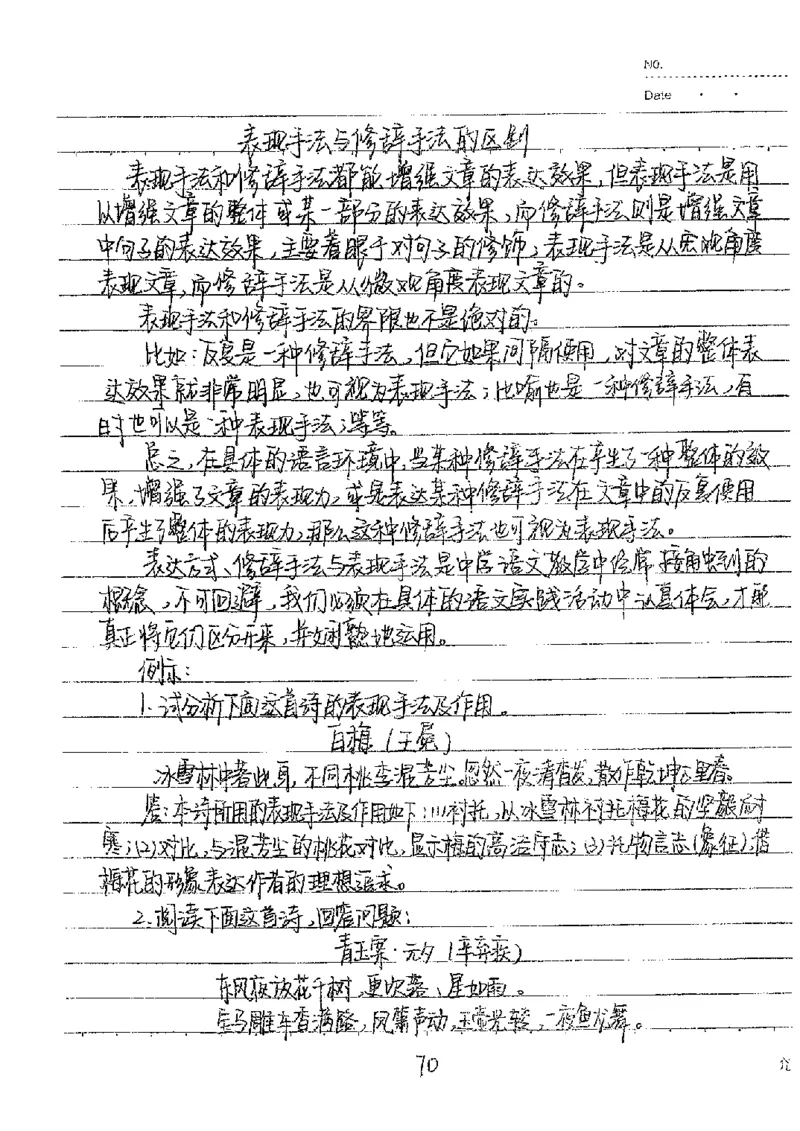 No.
Date
表现手法与修辞手法的区别
表现手法和修辞手法都能增强文章的表达效果,但表现手法是用
以增强文章的整体或某一部分的表达效果,而修辞手法则是增强文章
中句子的表达效果,主要着眼于对句子的修饰;表现手法是从宏观角度
表现文章,而修辞手法是从微观角度表现文章的。
表现手法和修辞手法的界限也不是绝对的。
比如:反复是一种修辞手法,但它如果间隔使用,对文章的整体表
达效果就非常明显,也可视为表现手法;比喻也是一种修辞手法,有
时也可以是一种表现手法;等等。
总之,在具体的语言环境中,当某种修辞手法在产生了一种整体的效
果,增强了文章的表现力,或是表达某种修辞手法在文章中的反复使用
后产生了整体的表现力,那么这种修辞手法也可视为表现手法。
表达方式、修辞手法与表现手法是中学语文教学中经常接触到的
概念,不可回避,我们必须在具体的语文实践活动中认真体会,才能
真正将它们区分开来,并娴熟地运用。
例示:
1.试分析下面这首诗的表现手法及作用。
白梅(王冕)
冰雪林中著此身,不同桃李混芳尘。忽然一夜清香发,散作乾坤万里春。
答:本诗所用的表现手法及作用如下:(1)衬托,从冰雪林衬托梅花的坚毅耐
寒;(2)对比,与混芳尘的桃花对比,显示梅的高洁守志;(3)托物言志(象征),借
梅花的形象表达作者的理想追求。
2.阅读下面这首诗,回答问题:
青玉案·元夕(辛弃疾)
东风夜放花千树,更吹落、星如雨。
宝马雕车香满路,凤箫声动,玉壶光转,一夜鱼龙舞。
70